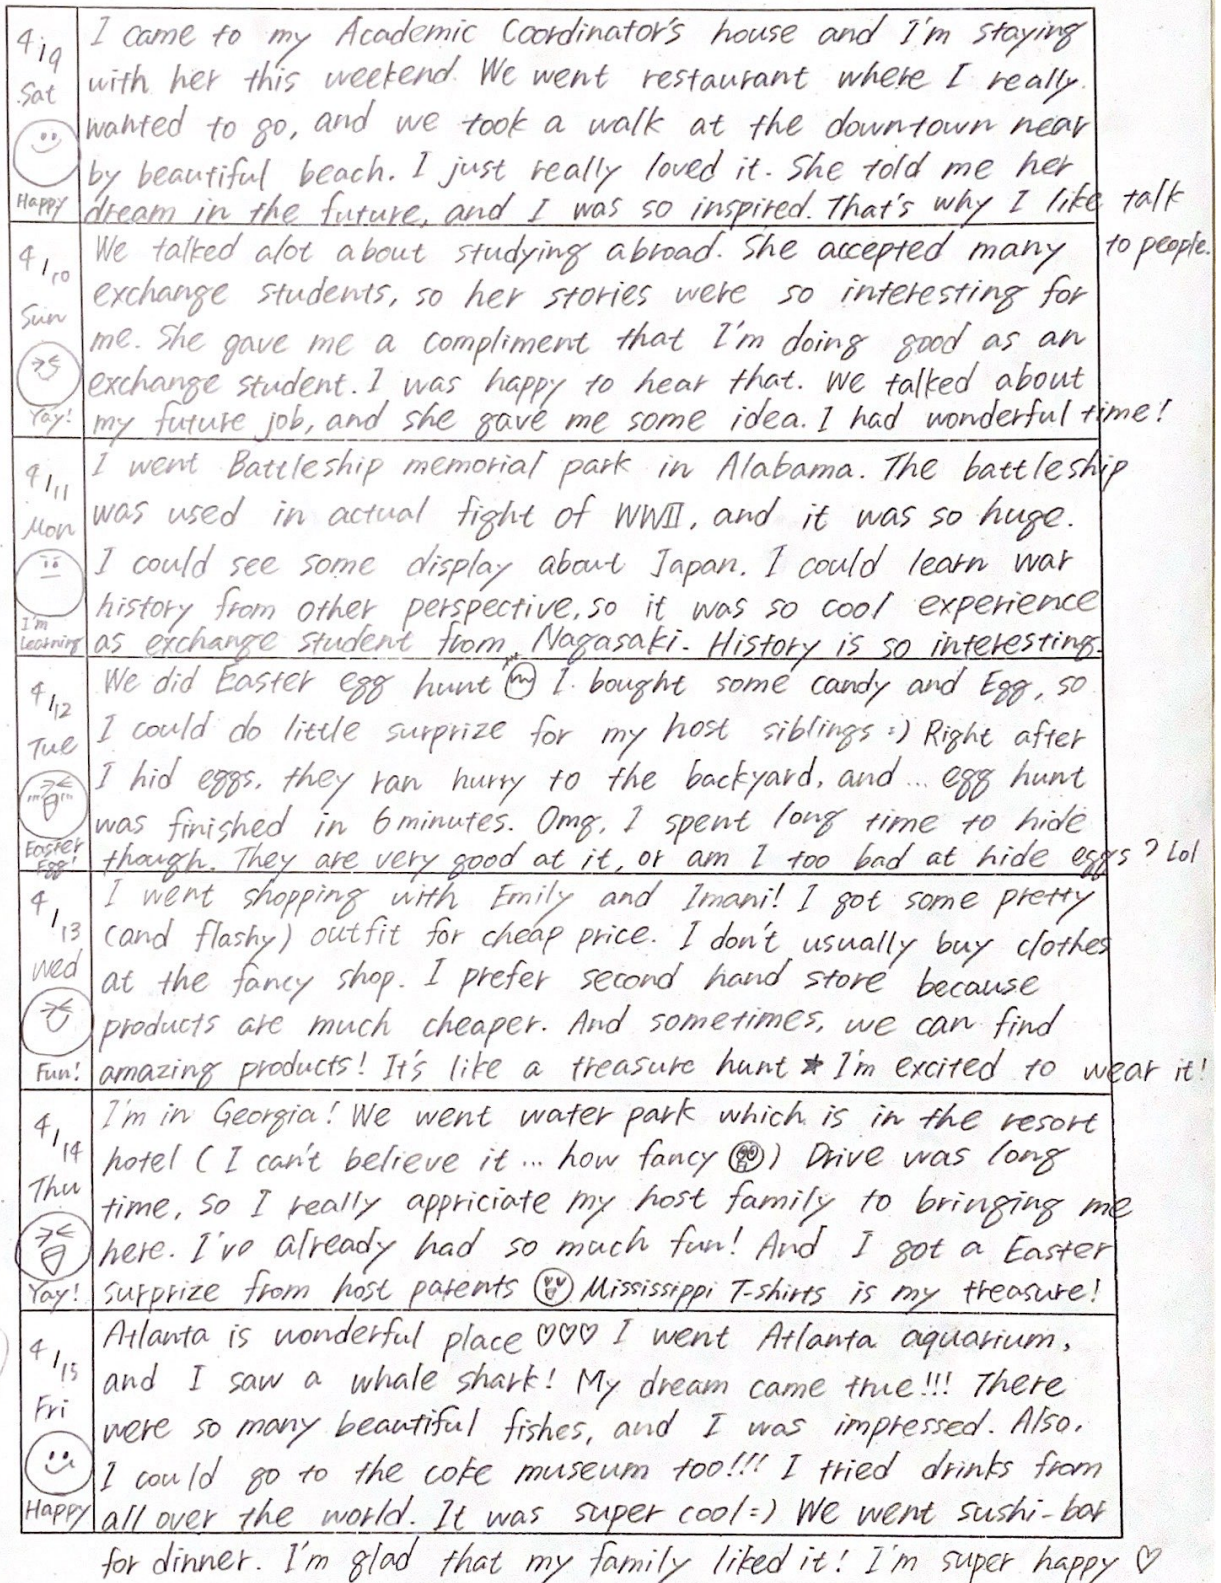 4/9
Sat
Happy
I came to my Academic Coordinator's house and I'm staying
with her this weekend. We went restaurant where I really
wanted to go, and we took a walk at the downtown near
by beautiful beach. I just really loved it. She told me her
dream in the future, and I was so inspired. That's why I like talk
to people.
4/10
Sun
Yay!
We talked alot about studying abroad. She accepted many
exchange students, so her stories were so interesting for
me. She gave me a compliment that I'm doing good as an
exchange student. I was happy to hear that. We talked about
my future job, and she gave me some idea. I had wonderful time!
4/11
Mon
I'm
Learning
I went Battleship memorial park in Alabama. The battleship
was used in actual fight of WWII, and it was so huge.
I could see some display about Japan. I could learn war
history from other perspective, so it was so cool experience
as exchange student from Nagasaki. History is so interesting.
4/12
Tue
Easter
Egg!
We did Easter egg hunt I bought some candy and Egg, so
I could do little surprize for my host siblings :) Right after
I hid eggs, they ran hurry to the backyard, and... egg hunt
was finished in 6 minutes. Omg, I spent long time to hide
though. They are very good at it, or am I too bad at hide eggs? Lol
4/13
Wed
Fun!
I went shopping with Emily and Imani! I got some pretty
(and flashy) outfit for cheap price. I don't usually buy clothes
at the fancy shop. I prefer second hand store because
products are much cheaper. And sometimes, we can find
amazing products! It's like a treasure hunt ★ I'm excited to wear it!
4/14
Thu
Yay!
I'm in Georgia! We went water park which is in the resort
hotel (I can't believe it... how fancy) Drive was long
time, so I really appriciate my host family to bringing me
here. I've already had so much fun! And I got a Easter
surprize from host parents Mississippi T-shirts is my treasure!
4/15
Fri
Happy
Atlanta is wonderful place ♡♡♡ I went Atlanta aquarium,
and I saw a whale shark! My dream came true!!! There
were so many beautiful fishes, and I was impressed. Also,
I could go to the coke museum too!!! I tried drinks from
all over the world. It was super cool =) We went sushi-bar
for dinner. I'm glad that my family liked it! I'm super happy ♡